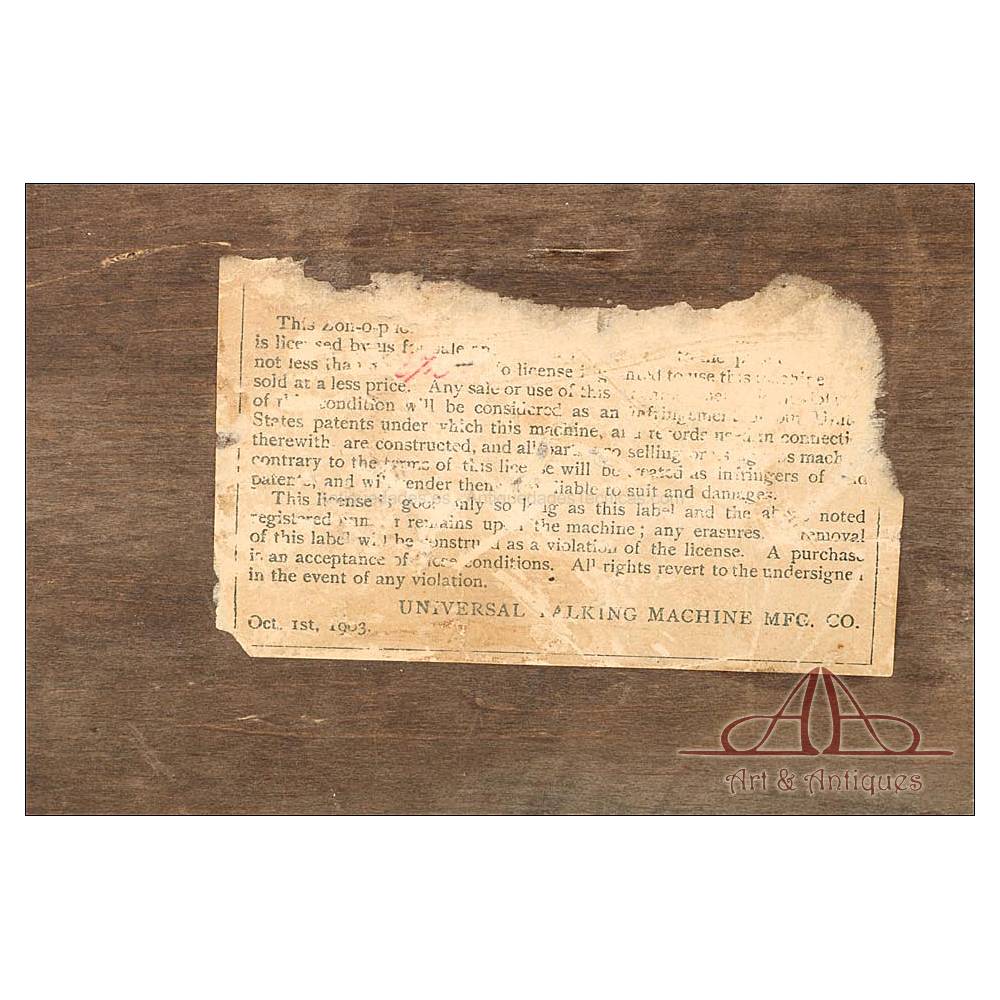 This Zon-o-p
is licensed by us for sale
not less than No license is granted to use this machine
sold at a less price. Any sale or use of this
of this condition will be considered as an infringement our United
States patents under which this machine, and records used in connecti
therewith are constructed, and all parties so selling or using this mach
contrary to the terms of this license will be treated as infringers of said
patents, and will render them liable to suit and damages.
This license is good only so long as this label and the above noted
registered number remains upon the machine; any erasures removal
of this label will be construed as a violation of the license. A purchase
is an acceptance of these conditions. All rights revert to the undersigned
in the event of any violation.
UNIVERSAL TALKING MACHINE MFG. CO.
Oct. 1st, 1903.
Art & Antiques